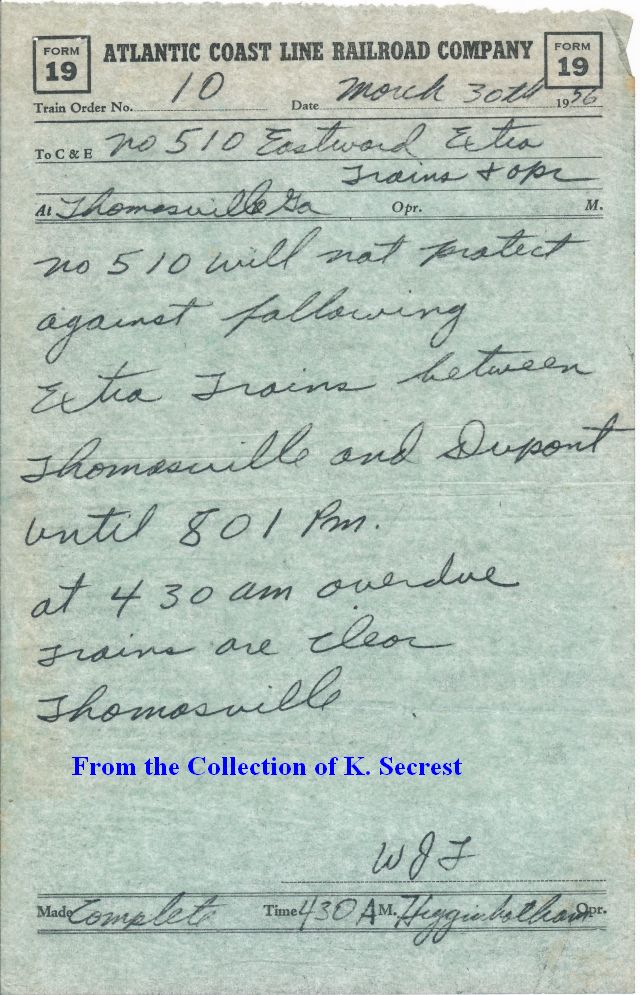 FORM 19 ATLANTIC COAST LINE RAILROAD COMPANY FORM 19
Train Order No. 10 Date March 30th 1956
To C & E No 510 Eastward Extra
Trains & opr
At Thomasville Ga Opr. M.
No 510 will not protect
against following
Extra Trains between
Thomasville and Dupont
until 801 Pm.
at 430 am overdue
Trains are clear
Thomasville
From the Collection of K. Secrest
WJT
Made Complete Time 430 A M. Higginbotham Opr.